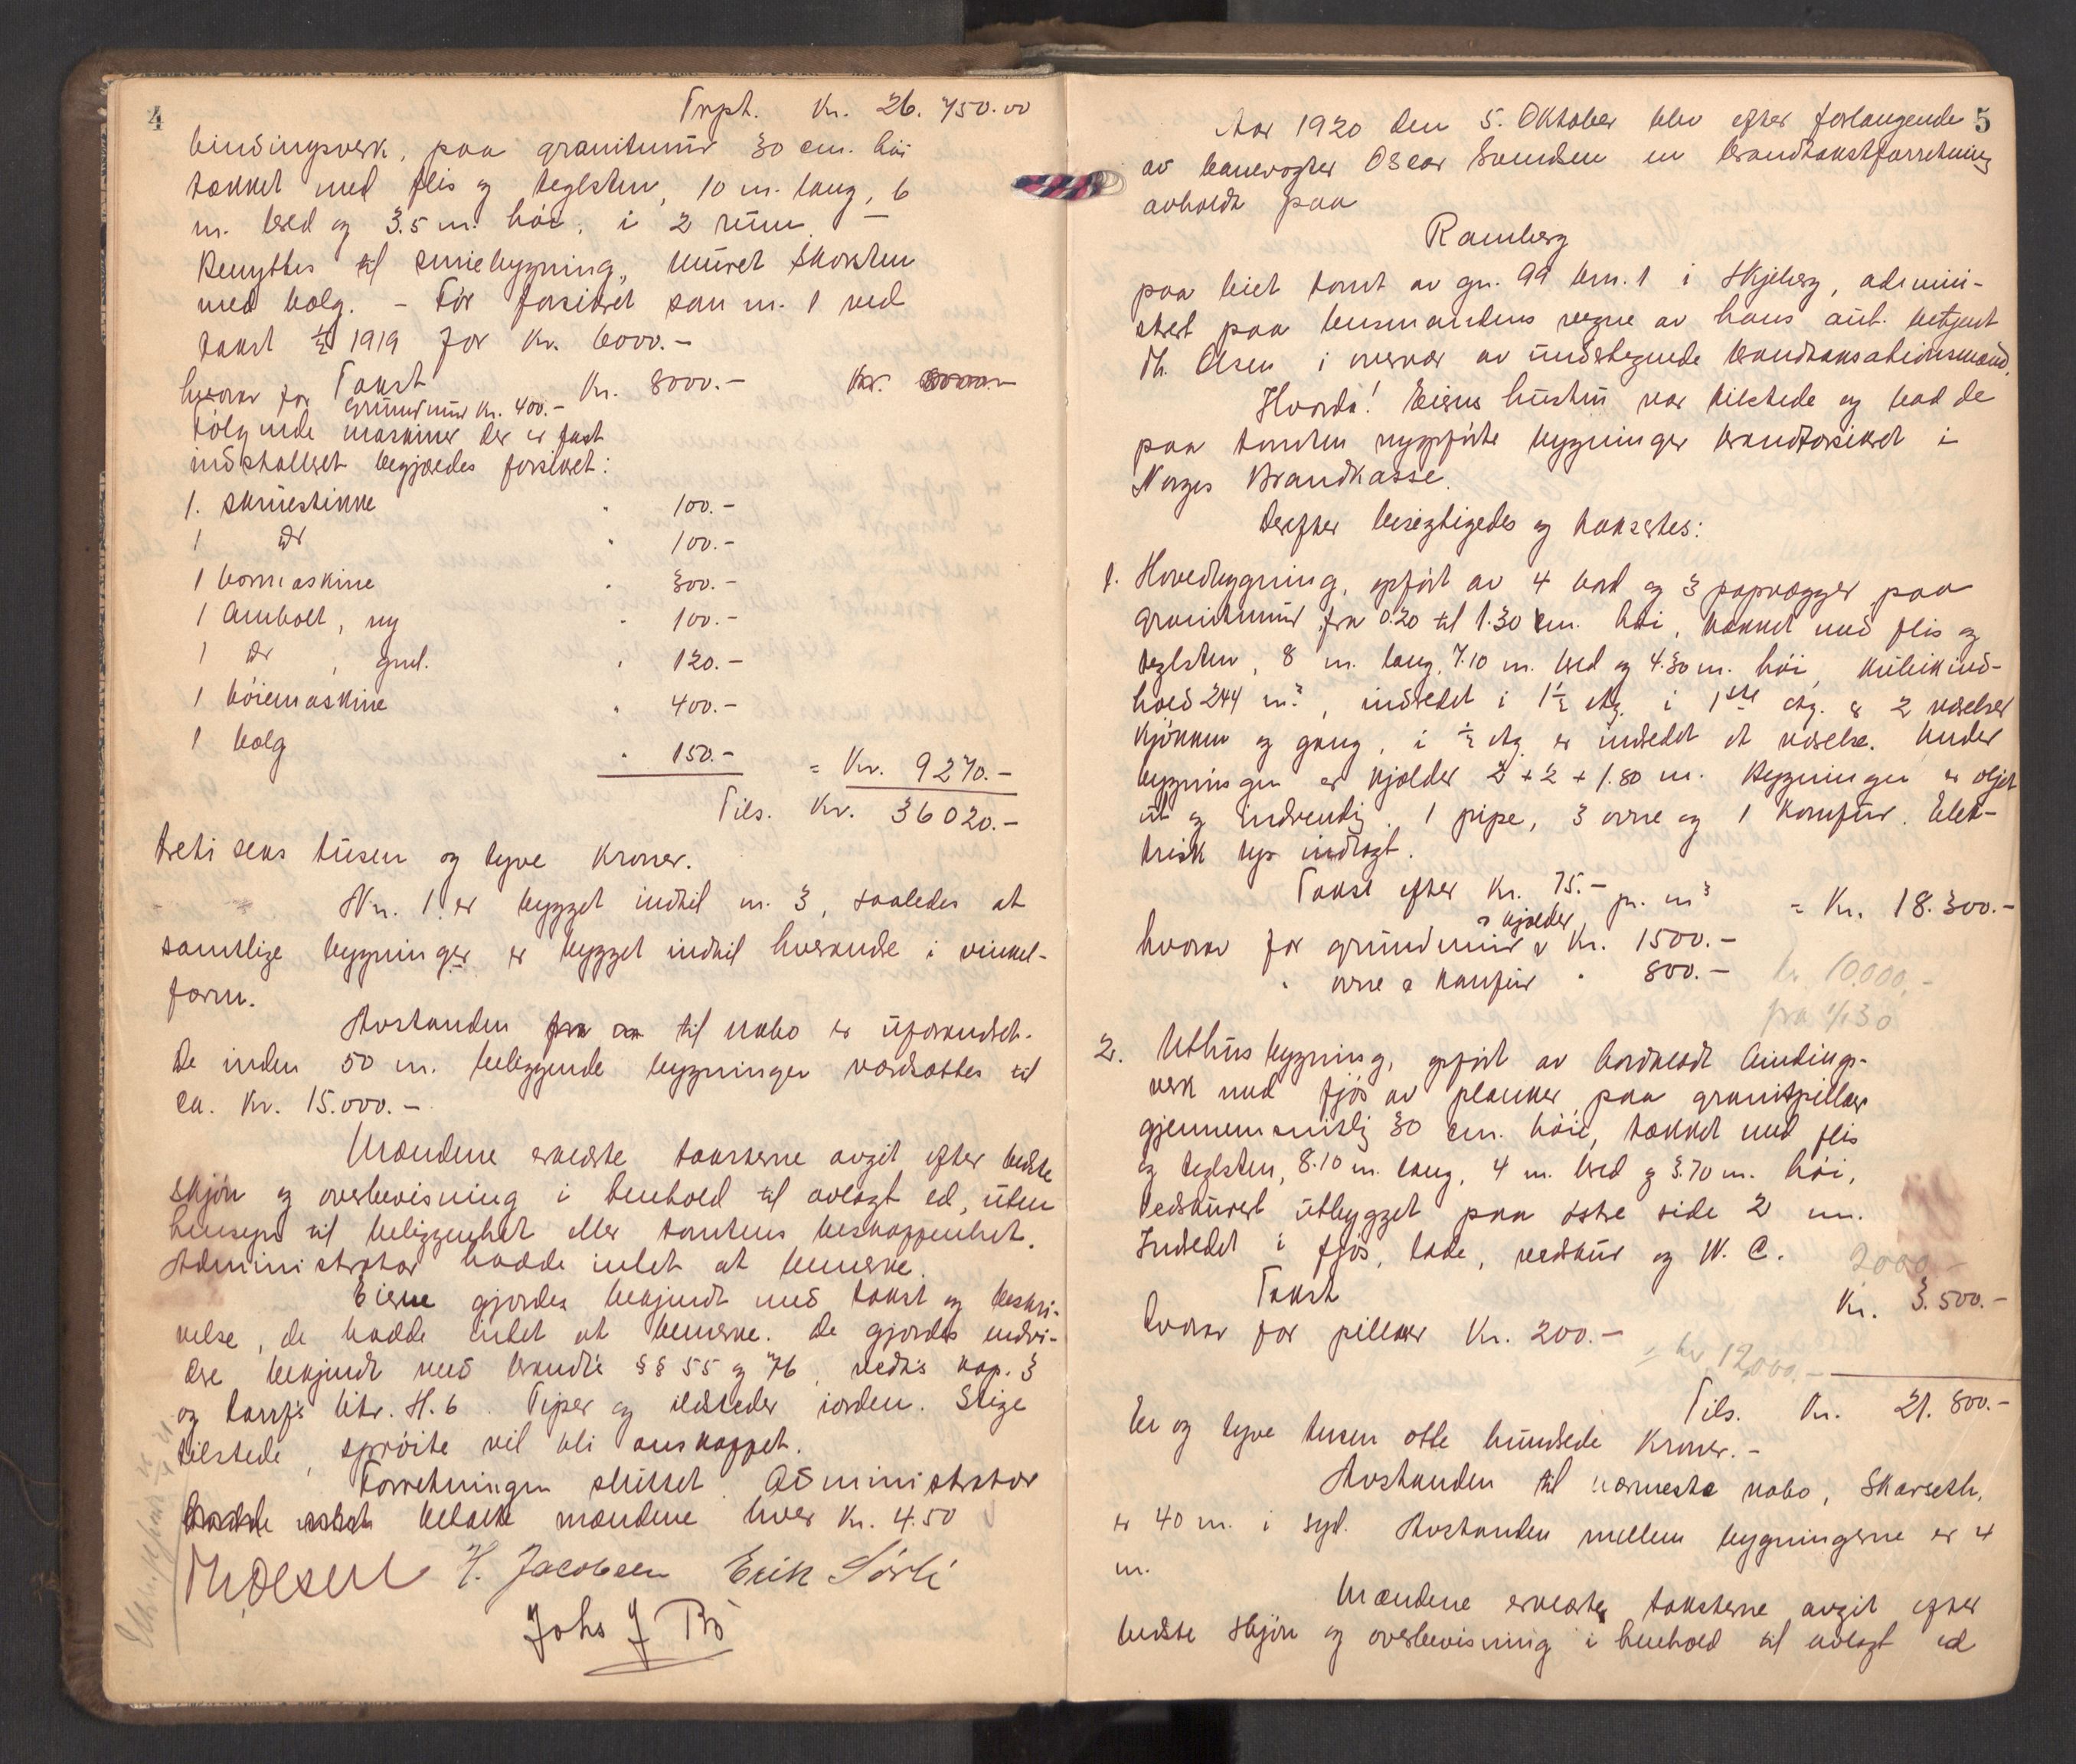 4
Trpt. Kr. 26.750.00
bindingsverk, paa granitmur 30 cm. høi
tækket med flis og teglsten, 10 m. lang, 6
m. bred og 3.5 m. høi, i 2 rum.
Benyttes til smiebygning, muret skorsten
med bælg. - Før forsikret som nr. 1 ved
takst 1919 for Kr. 6000.-
Takst Kr. 8000.-
hvorav for Grundmur Kr. 400.-
Følgende maskiner der er fast
indstalleret begjæredes forsikret:
1. Skruestikke " 100.-
1 do " 100.-
1 bormaskine " 300.-
1 Ambolt, ny " 100.-
1 do, gml. " 120.-
1 bøiemaskine " 400.-
1 bælg " 150.- = Kr. 9270.-
Tils. Kr. 36020.-
treti seks tusen og tyve Kroner.
Nr. 1 er bygget indtil nr. 3, saaledes at
samtlige bygninger er bygget indtil hverandre i vinkel-
form.
Avstanden til nabo er uforandret.
De inden 50 m. beliggende bygninger værdsættes til
ca. Kr. 15.000.-
Mændene erklærte taksterne avgit efter bedste
skjøn og overbevisning i henhold til avlagt ed, uten
hensyn til beliggenhet eller tomtens beskaffenhet.
Administrator hadde intet at bemerke.
Eierne gjordes bekjendt med takst og beskri-
velse, de hadde intet at bemerke. De gjordes endvi-
dere bekjendt med brandls §§ 55 og 76, vedts kap. 3
og tarifs litr. H. 6. Piper og ildsteder iorden. Stige
tilstede, sprøite vil bli anskaffet.
Forretningen sluttet. Administrator
betalte mændene hver Kr. 4.50
Th. Olsen H. Jacobsen Erik Sørli
Johs J Bø
5
Aar 1920 den 5. Oktober blev efter forlangende
av banevogter Oscar Svendsen en brandtakstforretning
avholdt paa
Ramberg
paa leiet tomt av gn. 99 brn. 1 i Skjeberg, admini-
stret paa lensmandens vegne av hans aut. betjent
Th. Olsen i overvær av undertegnede brandtaksationsmænd.
Hvorda! Eierens hustru var tilstede og bad de
paa tomten nyopførte bygninger brandforsikret i
Norges Brandkasse.
Derefter besigtigedes og taksertes:
1. Hovedbygning, opført av 4 bord og 3 papvægger paa
granitmur fra 0.20 til 1.30 m. høi, tækket med flis og
teglsten, 8 m. lang, 7.10 m. bred og 4.30 m. høi, kubikind-
hold 244 m³, indredet i 1½ etg. i 1ste etg. er 2 værelser
kjøkken og gang, i ½ etg. er indredet et værelse. Under
bygningen er kjælder 2 + 2 + 1.80 m. Bygningen er oljet
ut og indvendig. 1 pipe, 3 ovne og 1 Komfur. Elek-
trisk lys indlagt.
Takst efter Kr. 75.- pr. m³ = Kr. 18.300.-
hvorav for grundmur & kjælder Kr. 1500.-
" ovne & komfur " 800.- kr 10.000,-
fra 1/1 30
2. Uthusbygning, opført av bordklædt bindings-
verk med fjøs av planker paa granitpillarer
gjennemsnitlig 30 cm. høie, tækket med flis
og teglsten, 8.10 m. lang, 4 m. bred og 3.70 m. høi,
vedskuret utbygget paa østre side 2 m.
Indredet i fjøs, lade, vedskur og W. C. 2000.-
Takst Kr. 3.500.-
hvorav for pillarer Kr. 200.-
= kr 12,000.-
Tils. Kr. 21.800.-
En og tyve tusen otte hundrede Kroner.-
Avstanden til nærmeste nabo, Skarseth,
er 40 m. i syd. Avstanden mellem bygningerne er 4
m.
Mændene erklærte taksterne avgit efter
bedste skjøn og overbevisning i henhold til avlagt ed